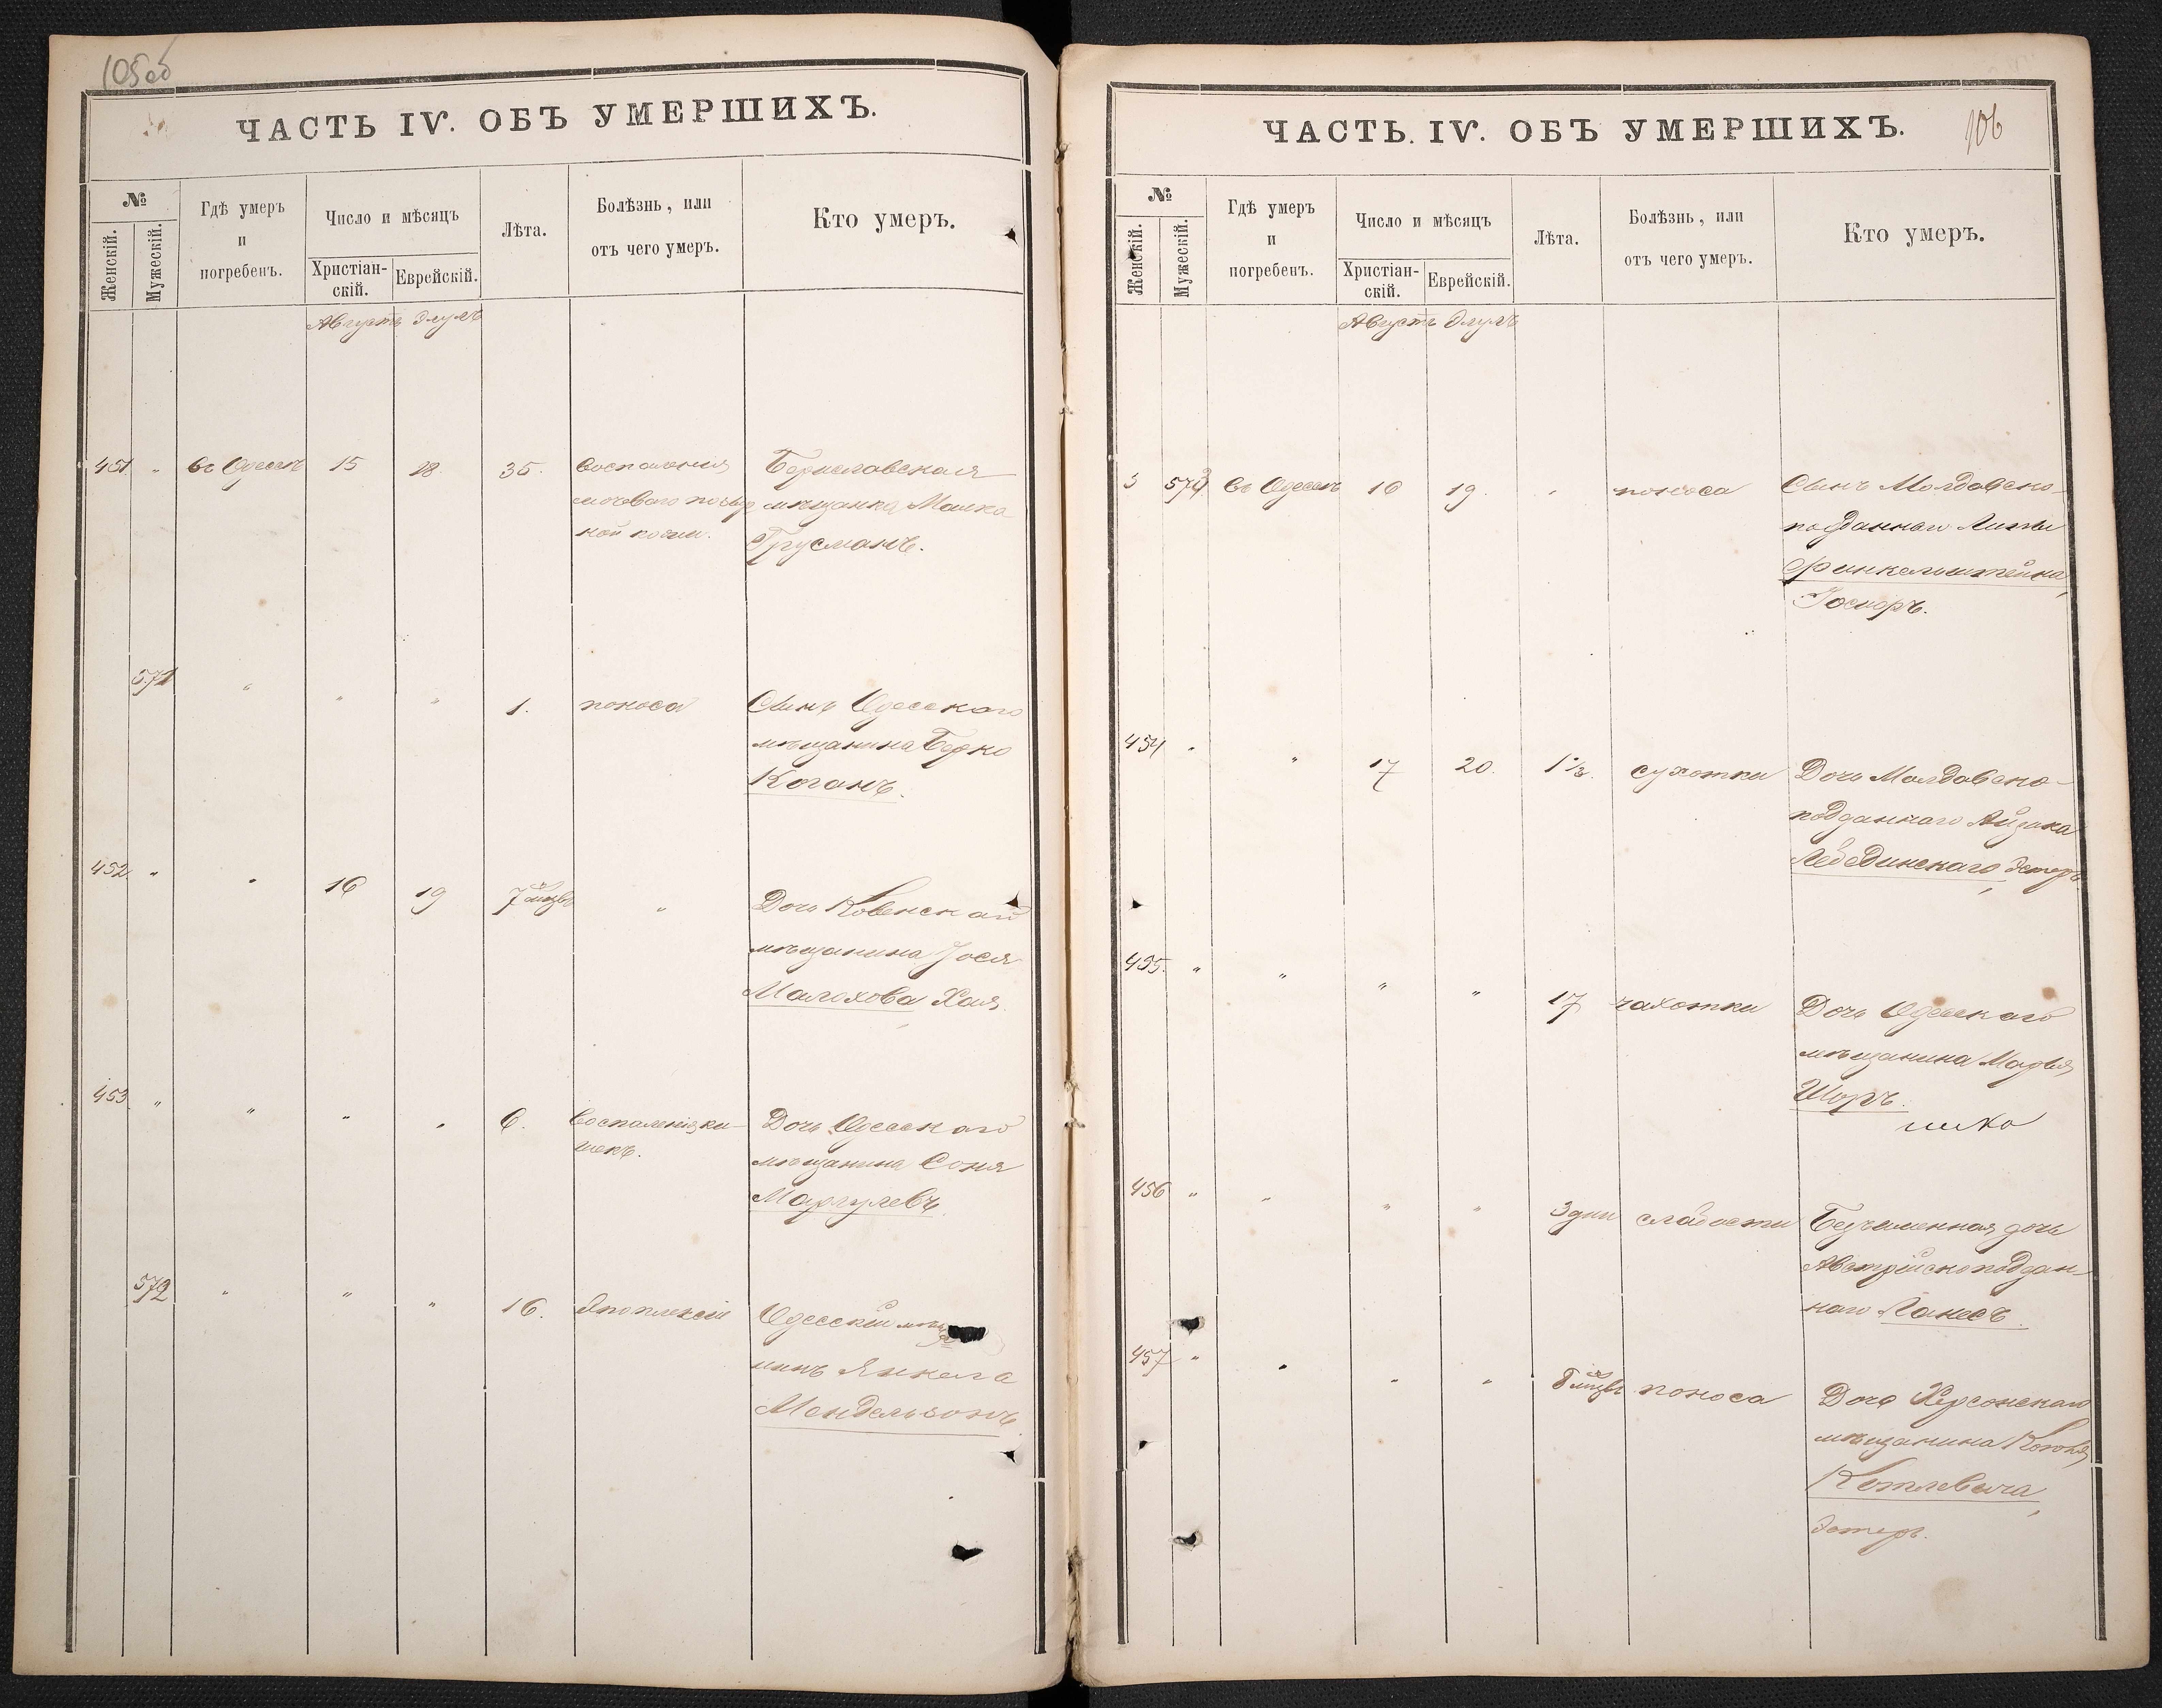 105об
ЧАСТЬ IV. ОБЪ УМЕРШИХЪ.
№
Женскій.
Мужескій.
Гдѣ умеръ
и
погребенъ.
Число и мѣсяцъ
Христіан-
скій.
Еврейскій.
Лѣта.
Болѣзнь, или
отъ чего умеръ.
Кто умеръ.
Августъ Элулъ
451 " Въ Одессѣ 15 18. 35. Воспаленія Бериславская
мочеваго мѣщанка Малка
ной почки. Грусманъ.
571 " " " 1. поноса Сынъ Одесскаго
мѣщанина Берко
Коганъ.
452 " " 16 19 7 мѣсяцъ " Дочь Ковенскаго
мѣщанина Іося
Малохова Хая.
453 " " " " 6. Воспаленія ки-
шекъ. Дочь Одесскаго
мѣщанина Соня
Маргулевъ.
572 " " " 16. Апоплексіи Одесскій мѣща
нинъ Янкель
Мендельзонъ
ЧАСТЬ. IV. ОБЪ УМЕРШИХЪ.
106
№
Женскій.
Мужескій.
Гдѣ умеръ
и
погребенъ.
Число и мѣсяцъ
Христіан-
скій.
Еврейскій.
Лѣта.
Болѣзнь, или
отъ чего умеръ.
Кто умеръ.
Августъ Элулъ
573 Въ Одессѣ 16 19. " поноса Сынъ Молдавско-
подданнаго
Финкельштейна,
454 " " 17 20. 1½. сухотки Дочь Молдавско-
подданнаго Айзика
Лебединскаго, Эстеръ
455. " " " " 17 чахотки Дочь Одесскаго
мѣщанина Марья
Шоръ.
456 " " " " 3 дни слабости Безъименная дочь
Австрійскоподдан-
наго Ланесъ.
457 " " " " мѣсяцъ поноса Дочь Херсонскаго
мѣщанина
Котлевича,
Эстеръ.